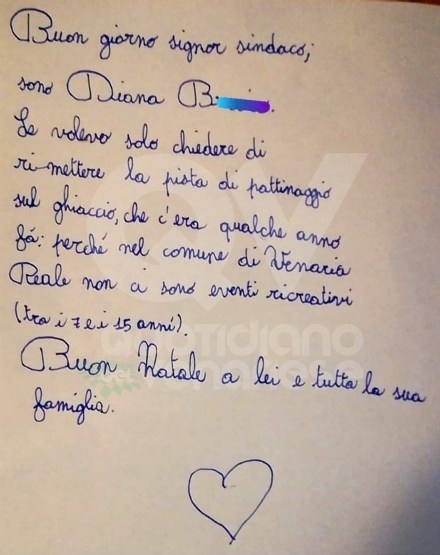 Buon giorno signor sindaco;
sono Diana B
Le volevo solo chiedere di
ri-mettere la pista di pattinaggio
sul ghiaccio, che c'era qualche anno
fá: perché nel comune di Venaria
Reale non ci sono eventi ricreativi
(tra i 7 e i 15 anni).
Buon Natale a lei e tutta la sua
famiglia.
QV
QUOTIDIANO
VENARIESE